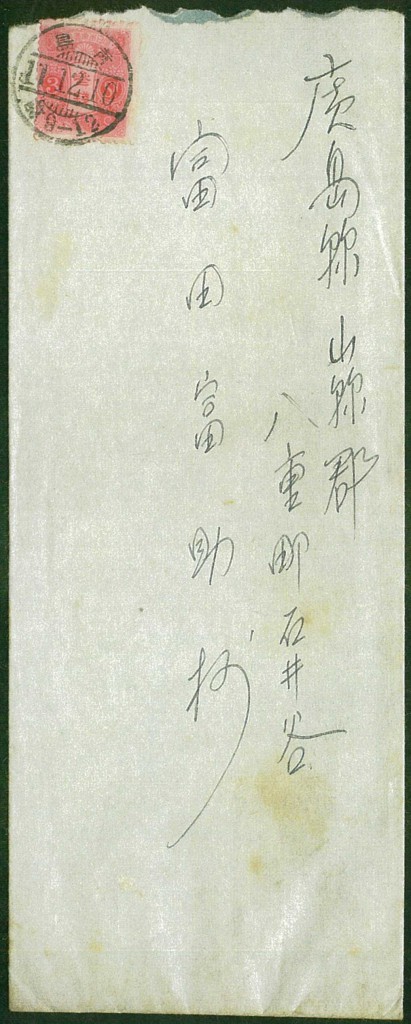 廣島縣山縣郡
八重町石井谷
富田富助様
青島
11.12.10
9-12